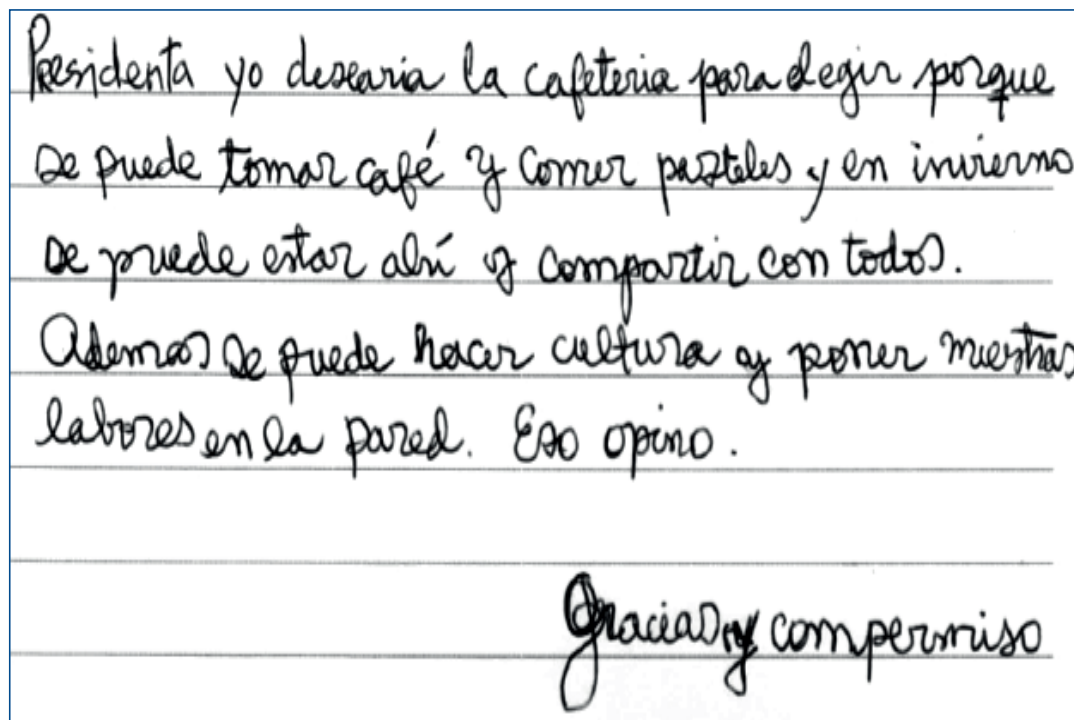 Presidenta yo desearia la cafeteria para elegir porque
se puede tomar café y comer pasteles y en invierno
se puede estar ahí y compartir con todos.
Ademas se puede hacer cultura y poner nuestras
labores en la pared. Eso opino.
Gracias y compermiso